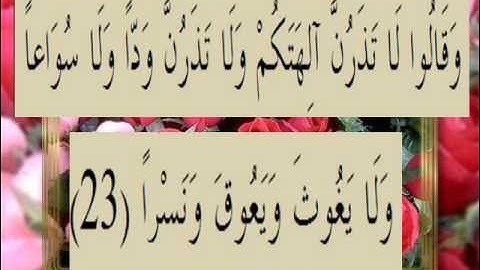 وَقَالُوا لَا تَذَرُنَّ آلِهَتَكُمْ وَلَا تَذَرُنَّ وَدًّا وَلَا سُوَاعاً
وَلَا يَغُوثَ وَيَعُوقَ وَنَسْراً (23)